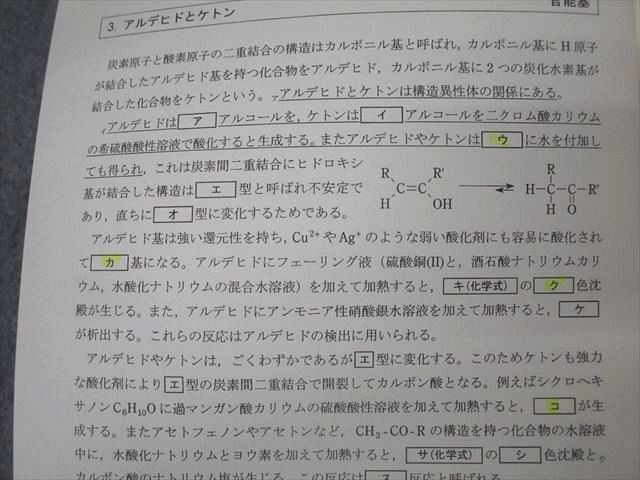 官能基
3. アルデヒドとケトン
炭素原子と酸素原子の二重結合の構造はカルボニル基と呼ばれ，カルボニル基に H 原子
が結合したアルデヒド基を持つ化合物をアルデヒド，カルボニル基に 2 つの炭化水素基が
結合した化合物をケトンという。ァアルデヒドとケトンは構造異性体の関係にある。
ィアルデヒドは ア アルコールを，ケトンは イ アルコールを二クロム酸カリウム
の希硫酸酸性溶液で酸化すると生成する。またアルデヒドやケトンは ウ に水を付加し
ても得られ，これは炭素間二重結合にヒドロキシ
基が結合した構造は エ 型と呼ばれ不安定で
あり，直ちに オ 型に変化するためである。
R R' H C=C OH
R H-C-C-R' H O
アルデヒド基は強い還元性を持ち，Cu²⁺ や Ag⁺ のような弱い酸化剤にも容易に酸化され
て カ 基になる。アルデヒドにフェーリング液（硫酸銅(II)と，酒石酸ナトリウムカリ
ウム，水酸化ナトリウムの混合水溶液）を加えて加熱すると， キ(化学式) の ク 色沈
殿が生じる。また，アルデヒドにアンモニア性硝酸銀水溶液を加えて加熱すると， ケ
が析出する。これらの反応はアルデヒドの検出に用いられる。
アルデヒドやケトンは，ごくわずかであるが エ 型に変化する。このためケトンも強力
な酸化剤により エ 型の炭素間二重結合で開裂してカルボン酸となる。例えばシクロヘキ
サノン C₆H₁₀O に過マンガン酸カリウムの硫酸酸性溶液を加えて加熱すると， コ が生
成する。またアセトフェノンやアセトンなど，CH₃-CO-R の構造を持つ化合物の水溶液
中に，水酸化ナトリウムとヨウ素を加えて加熱すると， サ(化学式) の シ 色沈殿とゥ
カルボン酸のナトリウム塩が生じる。この反応は ス 反応と呼ばれる。